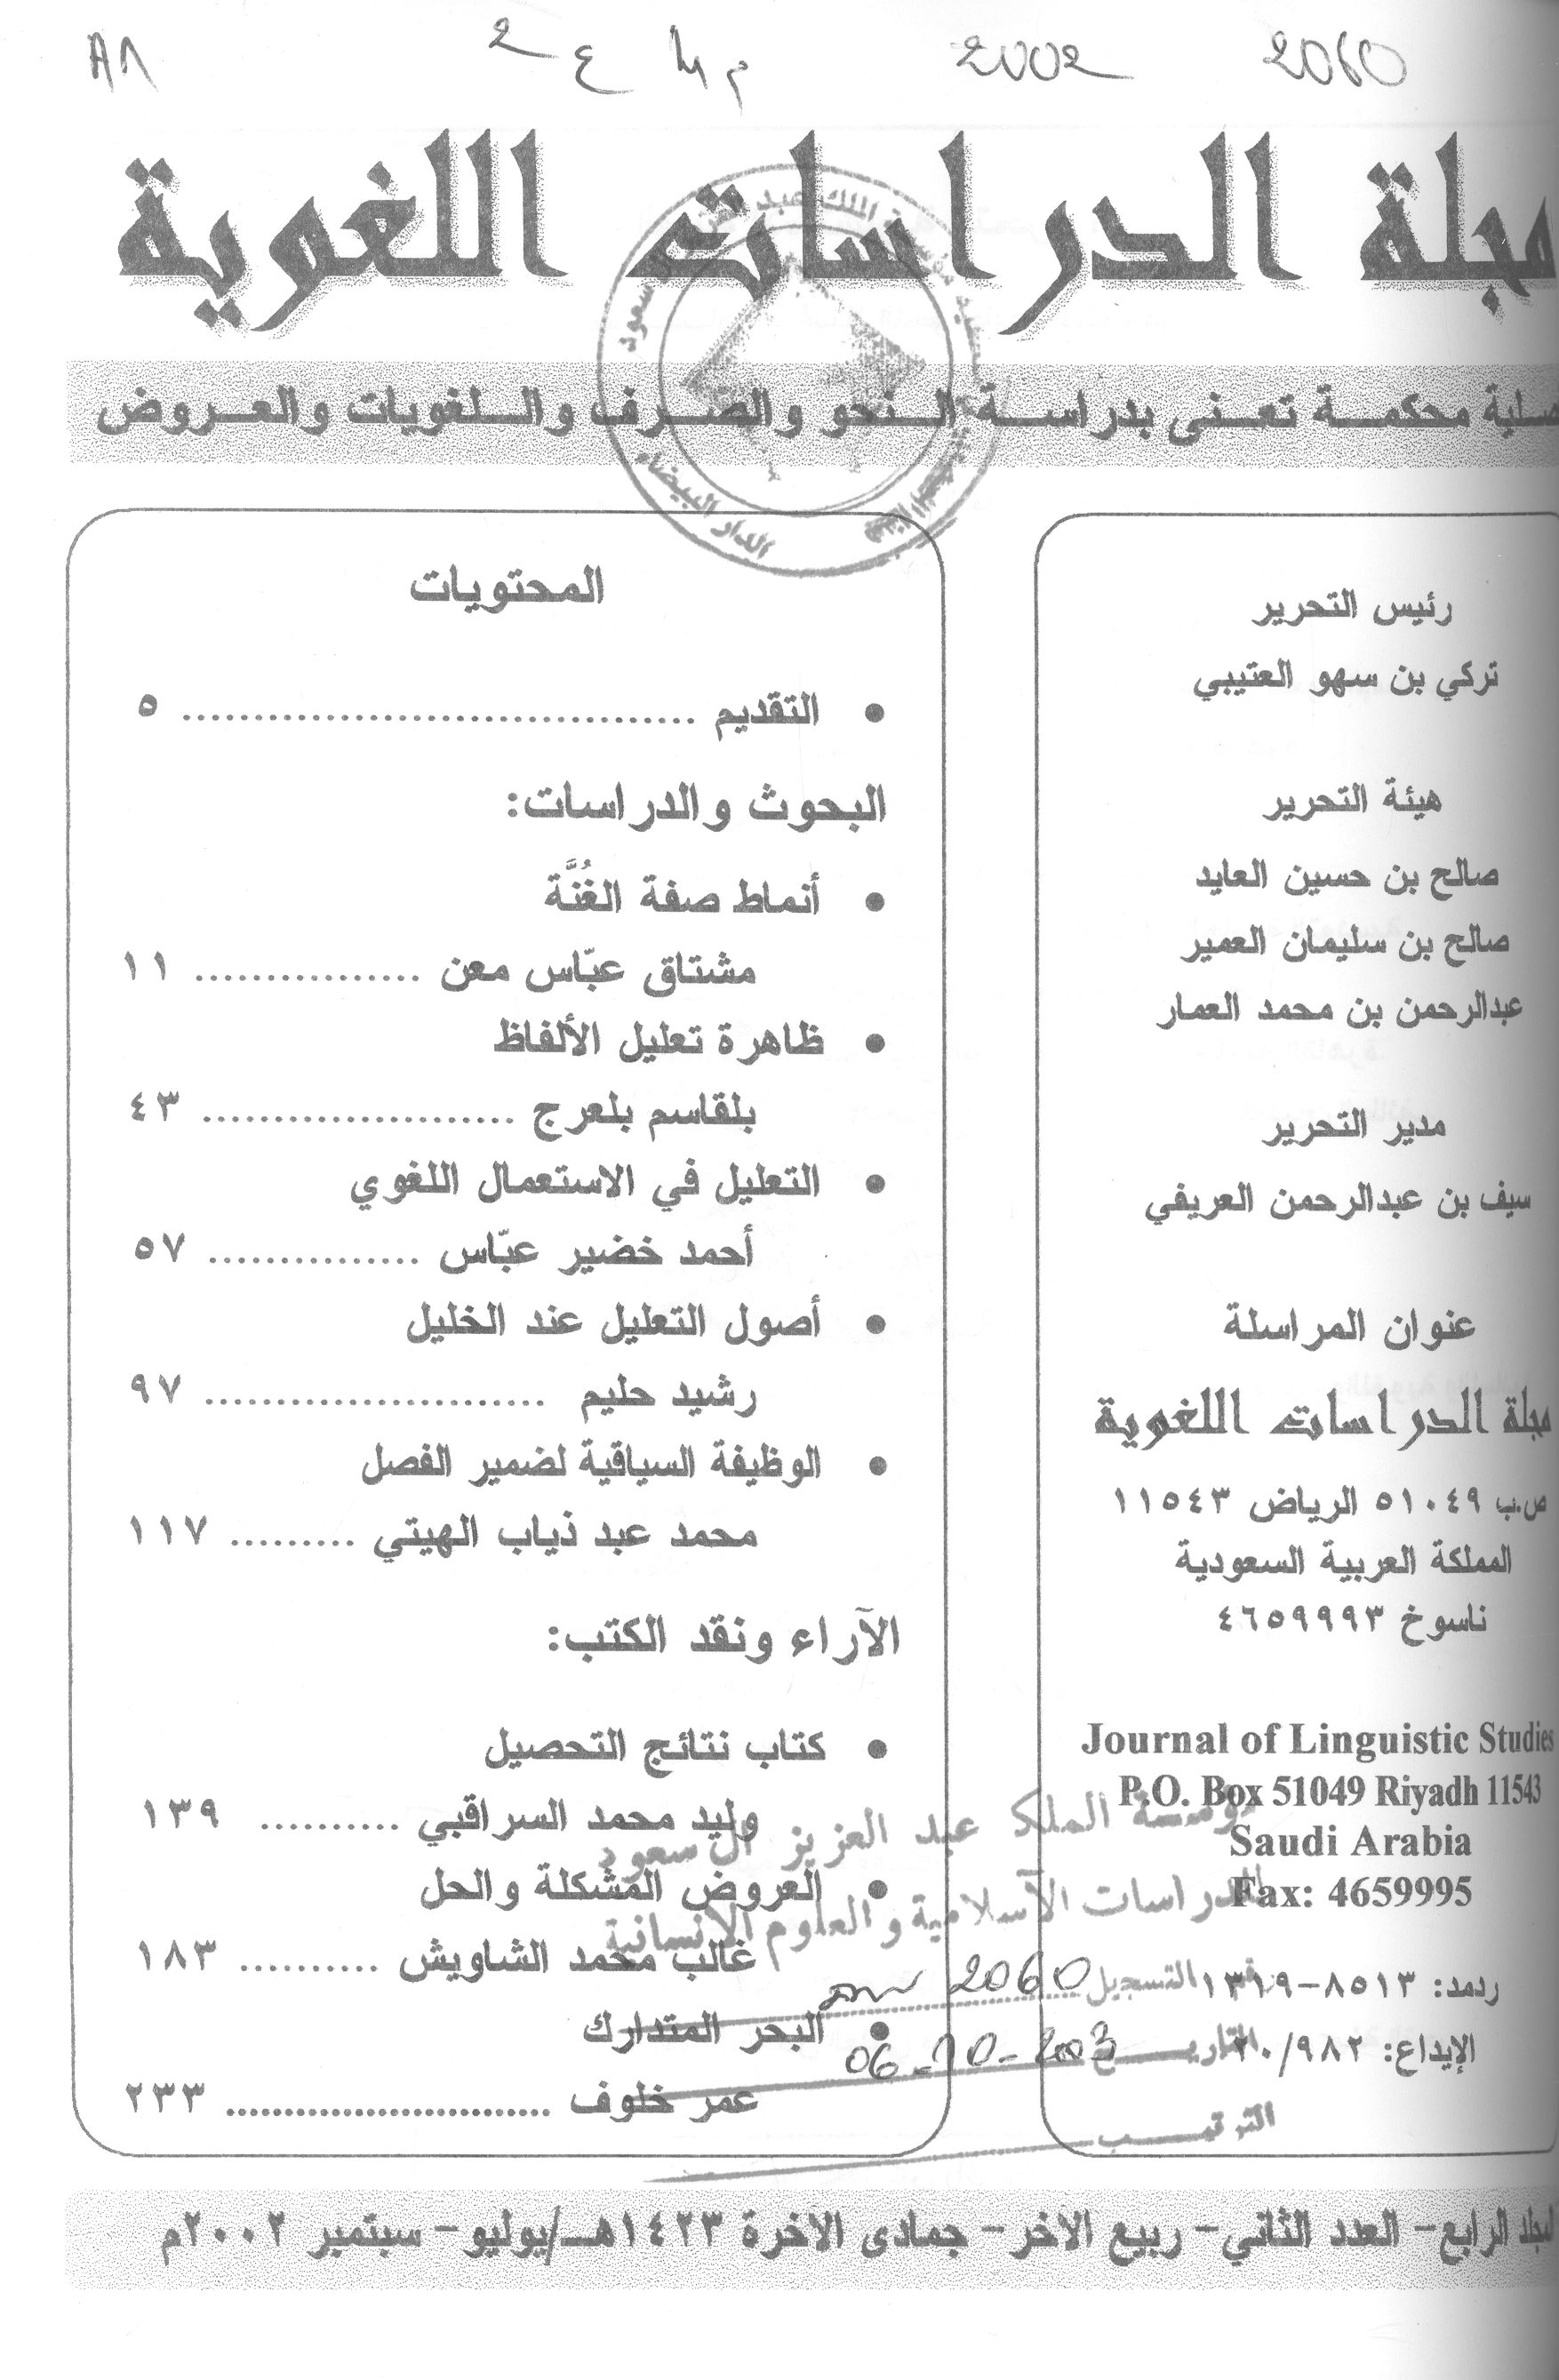 2060 2002 م 4 ع 2
مجلة الدراسات اللغوية
محكمة تعنى بدراسة النحو والصرف واللغويات والعروض
رئيس التحرير
تركي بن سهو العتيبي
هيئة التحرير
صالح بن حسين العايد
صالح بن سليمان العمير
عبدالرحمن بن محمد العمار
مدير التحرير
سيف بن عبدالرحمن العريفي
عنوان المراسلة
مجلة الدراسات اللغوية
ص.ب ٥١٠٤٩ الرياض ١١٥٤٣
المملكة العربية السعودية
ناسوخ ٤٦٥٩٩٩٣
Journal of Linguistic Studies
P.O. Box 51049 Riyadh 11543
Saudi Arabia
Fax: 4659995
ردمد: ٨٥١٣-١٣١٩
الإيداع: ٢٠/٩٨٢
المحتويات
• التقديم .................................... ٥
البحوث والدراسات:
• أنماط صفة الغُنَّة
مشتاق عبّاس معن ................ ١١
• ظاهرة تعليل الألفاظ
بلقاسم بلعرج ...................... ٤٣
• التعليل في الاستعمال اللغوي
أحمد خضير عبّاس ............... ٥٧
• أصول التعليل عند الخليل
رشيد حليم ........................ ٩٧
• الوظيفة السياقية لضمير الفصل
محمد عبد ذياب الهيتي ......... ١١٧
الآراء ونقد الكتب:
• كتاب نتائج التحصيل
وليد محمد السراقبي .......... ١٣٩
• العروض المشكلة والحل
غالب محمد الشاويش .......... ١٨٣
• البحر المتدارك
عمر خلوف ............................ ٢٣٣
مؤسسة الملك عبد العزيز آل سعود
للدراسات الآسلامية والعلوم الإنسانية
رقم التسجيل 2060
التاريخ 06-10-2003
الترتيب
الدار البيضاء
المجلد الرابع- العدد الثاني- ربيع الآخر- جمادى الآخرة ١٤٢٣هـ/يوليو- سبتمبر ٢٠٠٢م